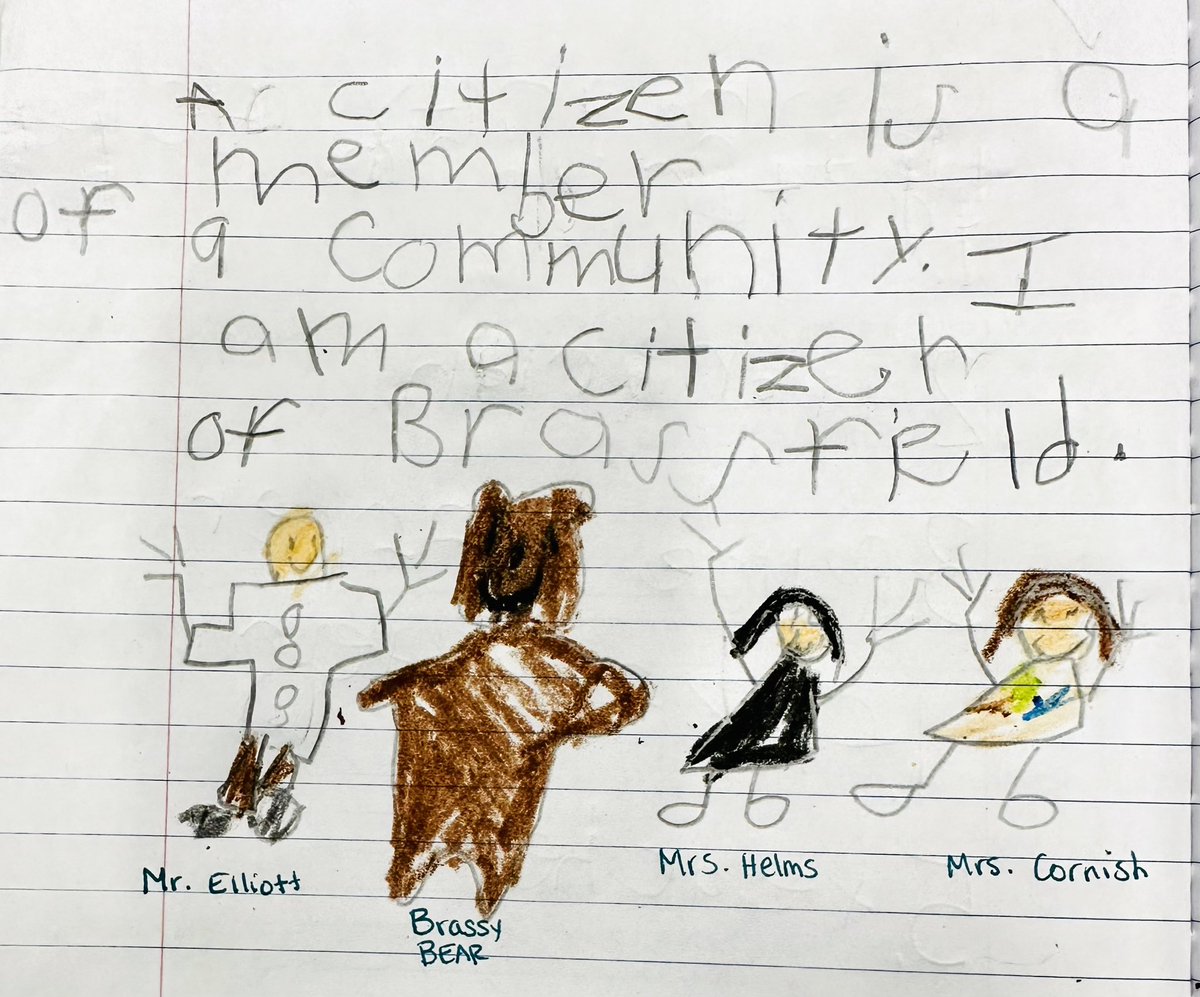 A citizen is a
member
of a Community. I
am a citizen
of Brassfield.
Mr. Elliott
Brassy
BEAR
Mrs. Helms
Mrs. Cornish